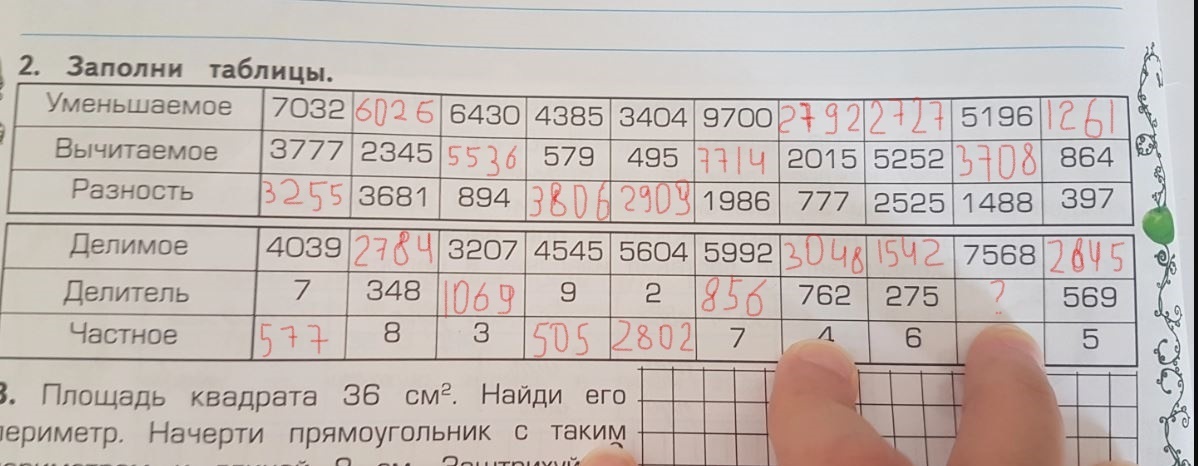 2. Заполни таблицы.
Уменьшаемое 7032 6026 6430 4385 3404 9700 2792 2727 5196 1261
Вычитаемое 3777 2345 5536 579 495 7714 2015 5252 3708 864
Разность 3255 3681 894 3806 2909 1986 777 2525 1488 397
Делимое 4039 2784 3207 4545 5604 5992 3048 1542 7568 2845
Делитель 7 348 1069 9 2 856 762 275 ? 569
Частное 577 8 3 505 2802 7 4 6 5
3. Площадь квадрата 36 см². Найди его
периметр. Начерти прямоугольник с таким